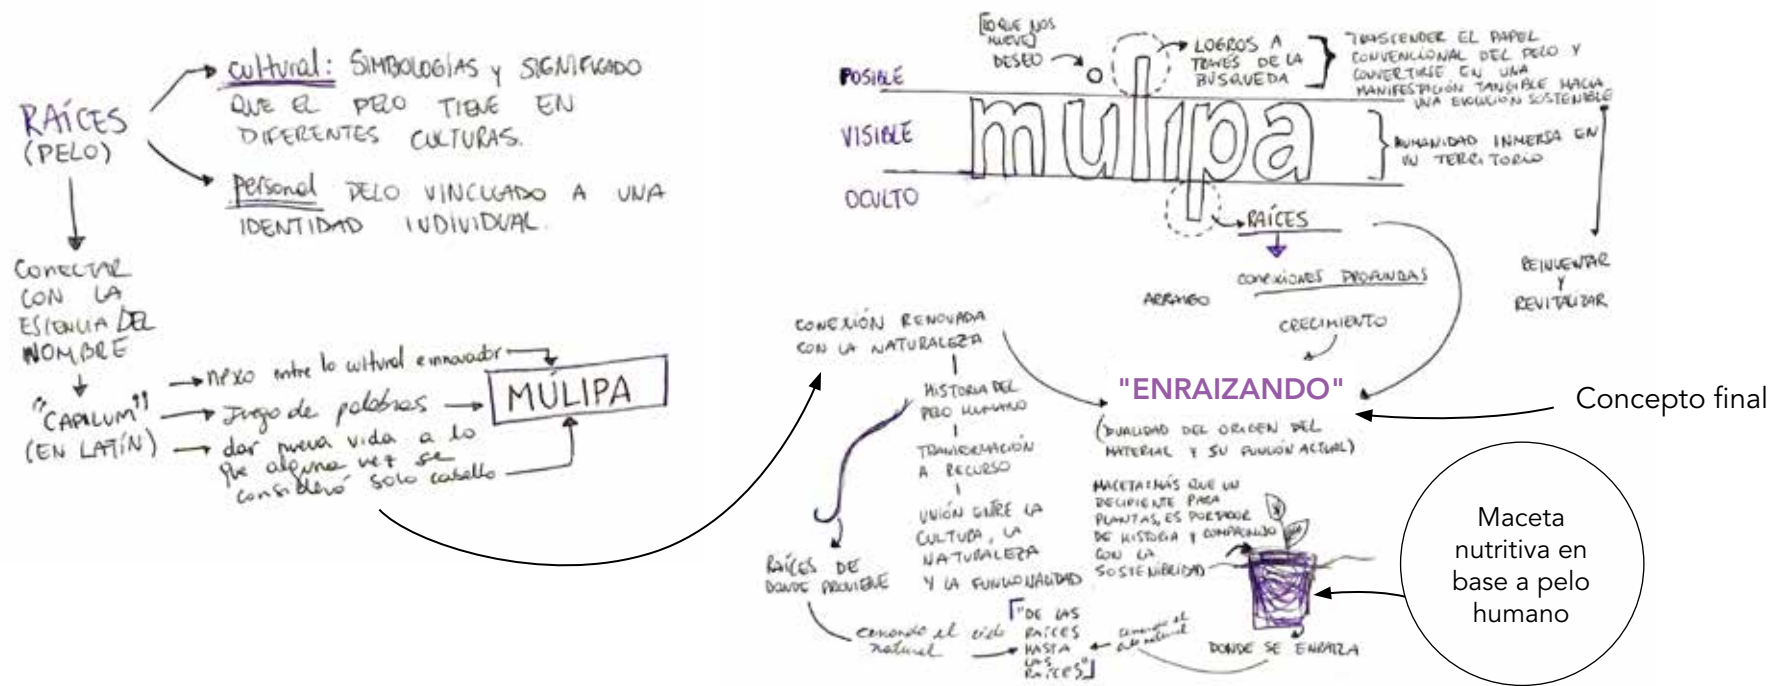 RAÍCES
(PELO)
cultural: SIMBOLOGÍAS y SIGNIFICADO
QUE EL PELO TIENE EN
DIFERENTES CULTURAS.
personal PELO VINCULADO A UNA
IDENTIDAD INDIVIDUAL.
CONECTAR
CON LA
ESCENCIA DEL
NOMBRE
"CAPILUM"
(EN LATÍN)
nexo entre lo cultural e innovador
Juego de palabras
dar nueva vida a lo
que alguna vez se
consideró solo cabello
MÚLIPA
[LO QUE NOS
MUEVE]
DESEO
LOGROS A
TRAVÉS DE LA
BÚSQUEDA
TRASCENDER EL PAPEL
CONVENCIONAL DEL PELO Y
CONVERTIRSE EN UNA
MANIFESTACIÓN TANGIBLE HACIA
UNA EVOLUCIÓN SOSTENIBLE
POSIBLE
VISIBLE
OCULTO
mulipa
HUMANIDAD INMERSA EN
UN TERRITORIO
RAÍCES
CONEXIONES PROFUNDAS
ARRAIGO
CRECIMIENTO
REINVENTAR
Y
REVITALIZAR
CONEXIÓN RENOVADA
CON LA NATURALEZA
HISTORIA DEL
PELO HUMANO
TRANSFORMACIÓN
A RECURSO
UNIÓN ENTRE LA
CULTURA, LA
NATURALEZA
Y LA FUNCIONALIDAD
"ENRAIZANDO"
(DUALIDAD DEL ORIGEN DEL
MATERIAL Y SU FUNCIÓN ACTUAL)
Concepto final
MACETA: MÁS QUE UN
RECIPIENTE PARA
PLANTAS, ES PORTADOR
DE HISTORIA Y COMPROMISO
CON LA
SOSTENIBILIDAD
Maceta
nutritiva en
base a pelo
humano
RAÍCES DE
DONDE PROVIENE
cerrando el ciclo
natural
"DE LAS
RAÍCES
HASTA
LAS
RAÍCES"
cerrando el
ciclo natural
DONDE SE ENRAIZA